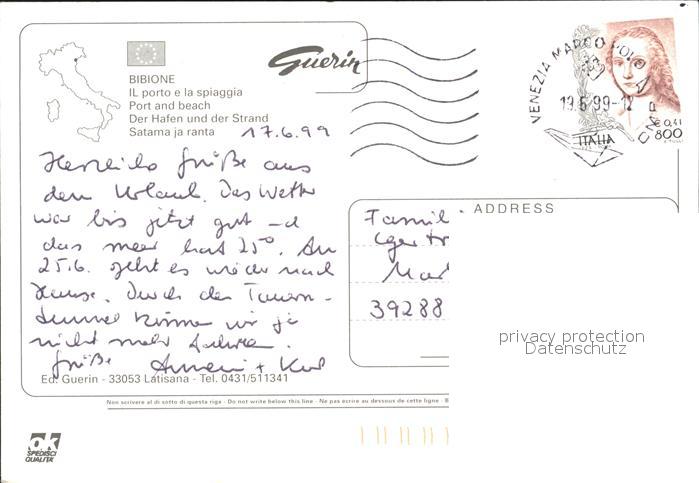 Guerin
BIBIONE
IL porto e la spiaggia
Port and beach
Der Hafen und der Strand
Satama ja ranta
17.6.99
Herzliche Grüße aus
dem Urlaub. Das Wetter
war bis jetzt gut und
das Meer hat 25°. Am
25.6. geht es wieder nach
Hause. Durch den Tauern-
tunnel können wir ja
nicht mehr fahren.
Grüße
Ed. Guerin - 33053 Latisana - Tel. 0431/511341
VENEZIA MARCO POLO
19.6.99-12
ITALIA
€ 0,41
800
ADDRESS
Famil
39288
privacy protection
Datenschutz
Non scrivere al di sotto di questa riga - Do not write below this line - Ne pas ecrire au dessous de cette ligne - B
ok
SPEDISCI
QUALITA'